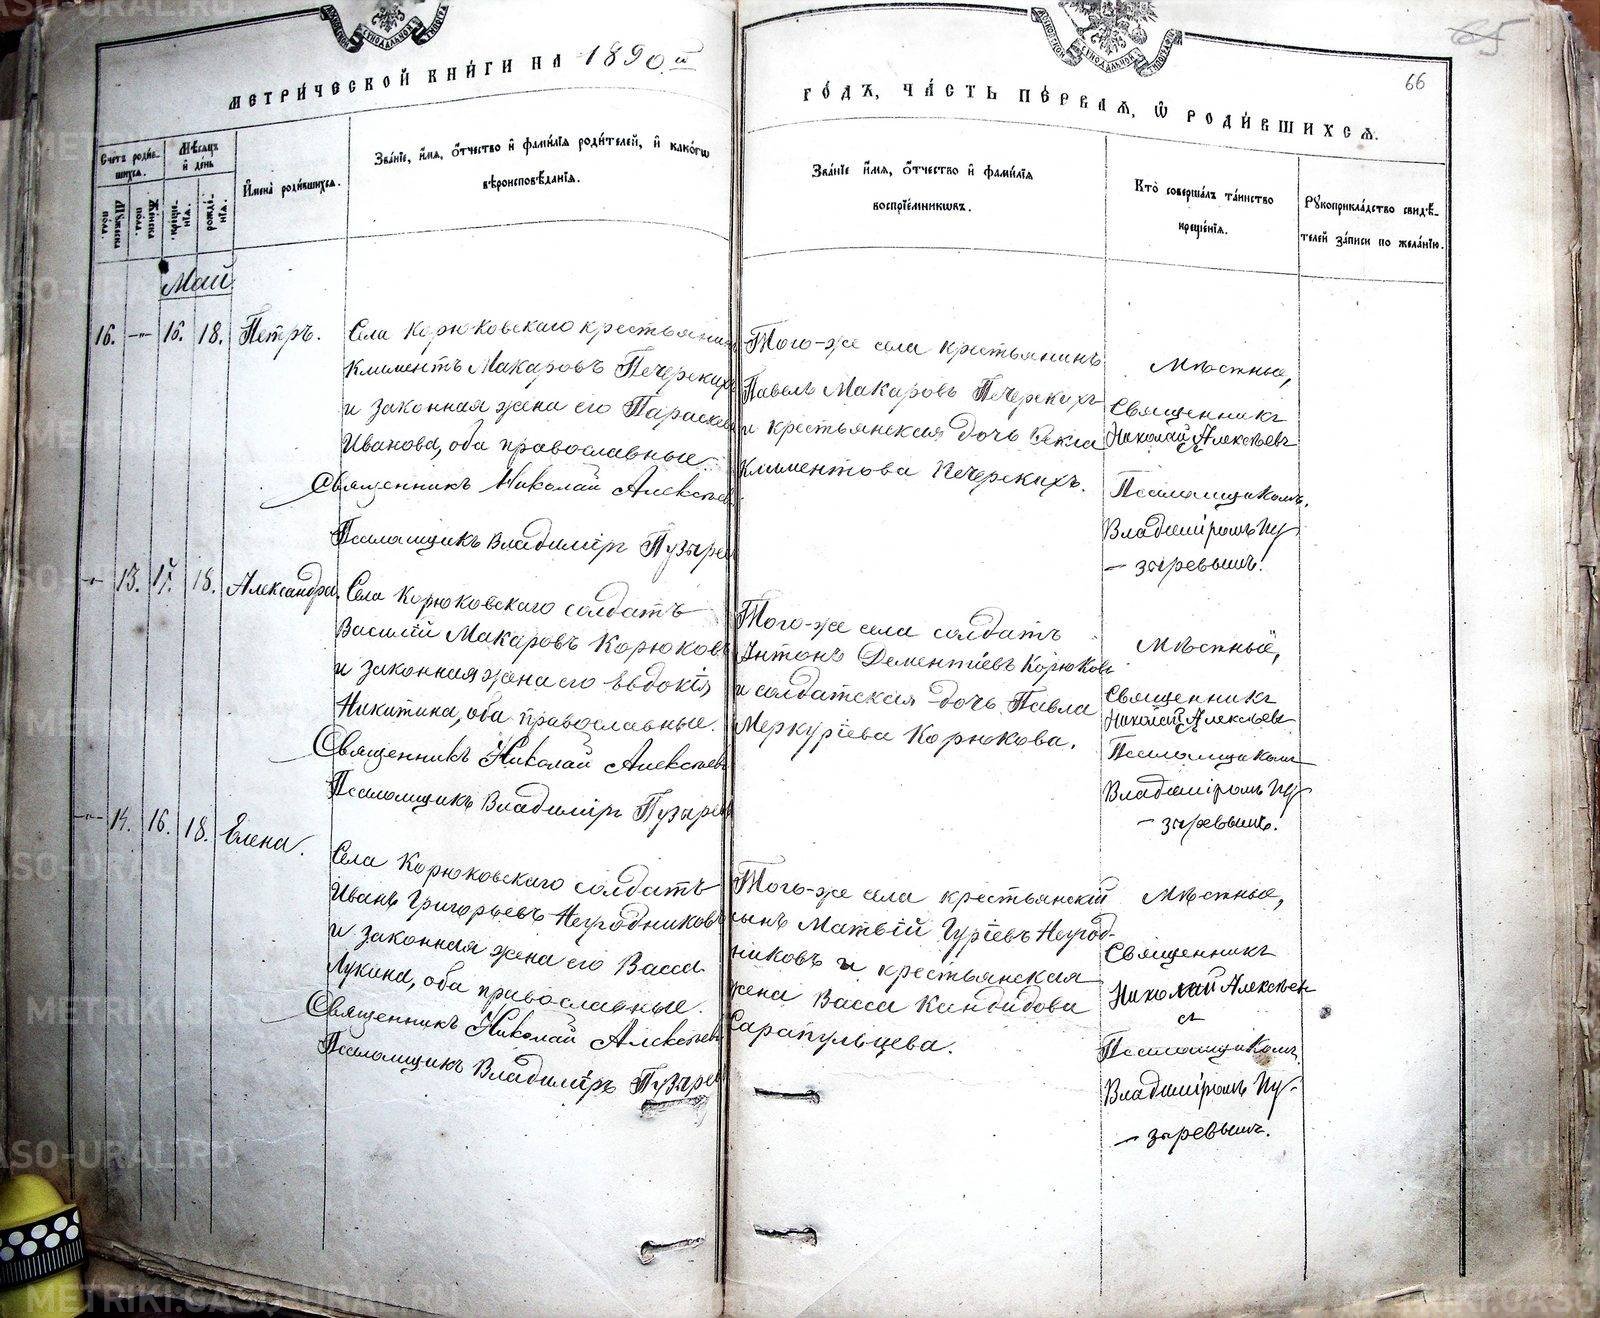 МЕТРИ́ЧЕСКОЙ КНИ́ГИ НА 1890.й
ГО́ДЪ, ЧА́СТЬ ПЕ́РВАѦ, Ѽ РОДИ́ВШИХСѦ.
65
66
Сче́тъ роди́в-
шихся.
Мѣ́сяцъ
и҆ де́нь
Му́жеска
по́ла.
Же́нска
по́ла.
рожде́-
нїя.
креще́-
нїя.
И҆мена̀ роди́вшихся.
Зва́нїе, и҆́мя, ѻ҆́тчество и҆ фами́лїя роди́телей, и҆ како́гѡ
вѣроисповѣ́данїя.
Зва́нїе и҆́мя, ѻ҆́тчество и҆ фами́лїя
воспрїе́мникѡвъ.
Кто̀ соверша́лъ та́инство
креще́нїя.
Рꙋкоприкла́дство свидѣ́-
телей за́писи по жела́нїю.
Май
16. — 16. 18. Петръ.
Села Корюковскаго крестьянинъ
Климентъ Макаровъ Печерскихъ
и законная жена его Параскева
Иванова, оба православные.
Священникъ Николай Алексѣевъ
Псаломщикъ Владиміръ Пузырев
Того-же села крестьянинъ
Павелъ Макаровъ Печерскихъ
и крестьянская дочь Фекла
Климентова Печерскихъ.
Мѣстные,
Священникъ
Николай Алексѣевъ
съ
Псаломщикомъ
Владиміромъ Пу-
— зыревымъ.
— 13. 17. 18. Александра.
Села Корюковскаго солдатъ
Василій Макаровъ Корюковъ
и законная жена его Евдокія
Никитина, оба православные.
Священникъ Николай Алексѣевъ
Псаломщикъ Владиміръ Пузырев
Того-же села солдатъ
Антонъ Дементіевъ Корюковъ
и солдатская дочь Павла
Меркуріева Корюкова.
Мѣстные,
Священникъ
Николай Алексѣевъ
съ
Псаломщикомъ
Владиміромъ Пу-
— зыревымъ.
— 14. 16. 18. Елена.
Села Корюковскаго солдатъ
Иванъ Григорьевъ Негодниковъ
и законная жена его Васса
Лукина, оба православные.
Священникъ Николай Алексѣевъ
Псаломщикъ Владиміръ Пузырев
Того-же села крестьянскій
сынъ Матвій Гуріевъ Негод-
никовъ и крестьянская
жена Васса Кандидова
Сарапульцева.
Мѣстные,
Священникъ
Николай Алексѣев
съ
Псаломщикомъ
Владиміромъ Пу-
— зыревымъ.
METRIKI.GASO-URAL.RU